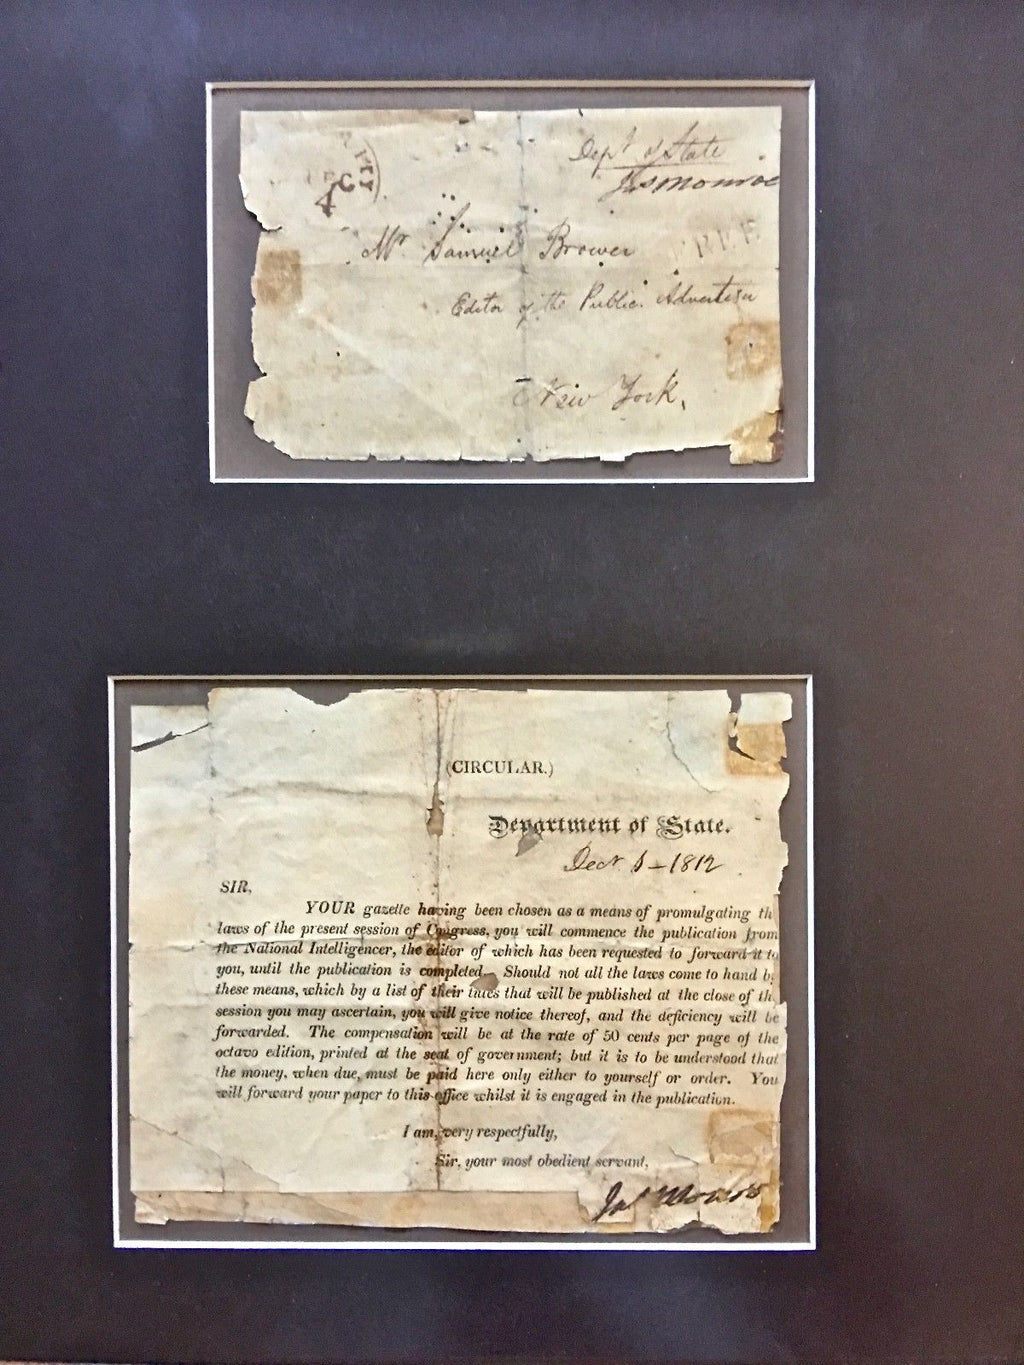 Dept of State
Jas Monroe
DEC
4
FREE
Mr. Samuel Brower
Editor of the Public Advertiser
New York.
(CIRCULAR.)
Department of State.
Decr 1-1812
SIR,
YOUR gazette having been chosen as a means of promulgating th
laws of the present session of Congress, you will commence the publication from
the National Intelligencer, the editor of which has been requested to forward it to
you, until the publication is completed. Should not all the laws come to hand b
these means, which by a list of their titles that will be published at the close of th
session you may ascertain, you will give notice thereof, and the deficiency will be
forwarded. The compensation will be at the rate of 50 cents per page of the
octavo edition, printed at the seat of government; but it is to be understood that
the money, when due, must be paid here only either to yourself or order. You
will forward your paper to this office whilst it is engaged in the publication.
I am, very respectfully,
Sir, your most obedient servant,
Jas Monroe